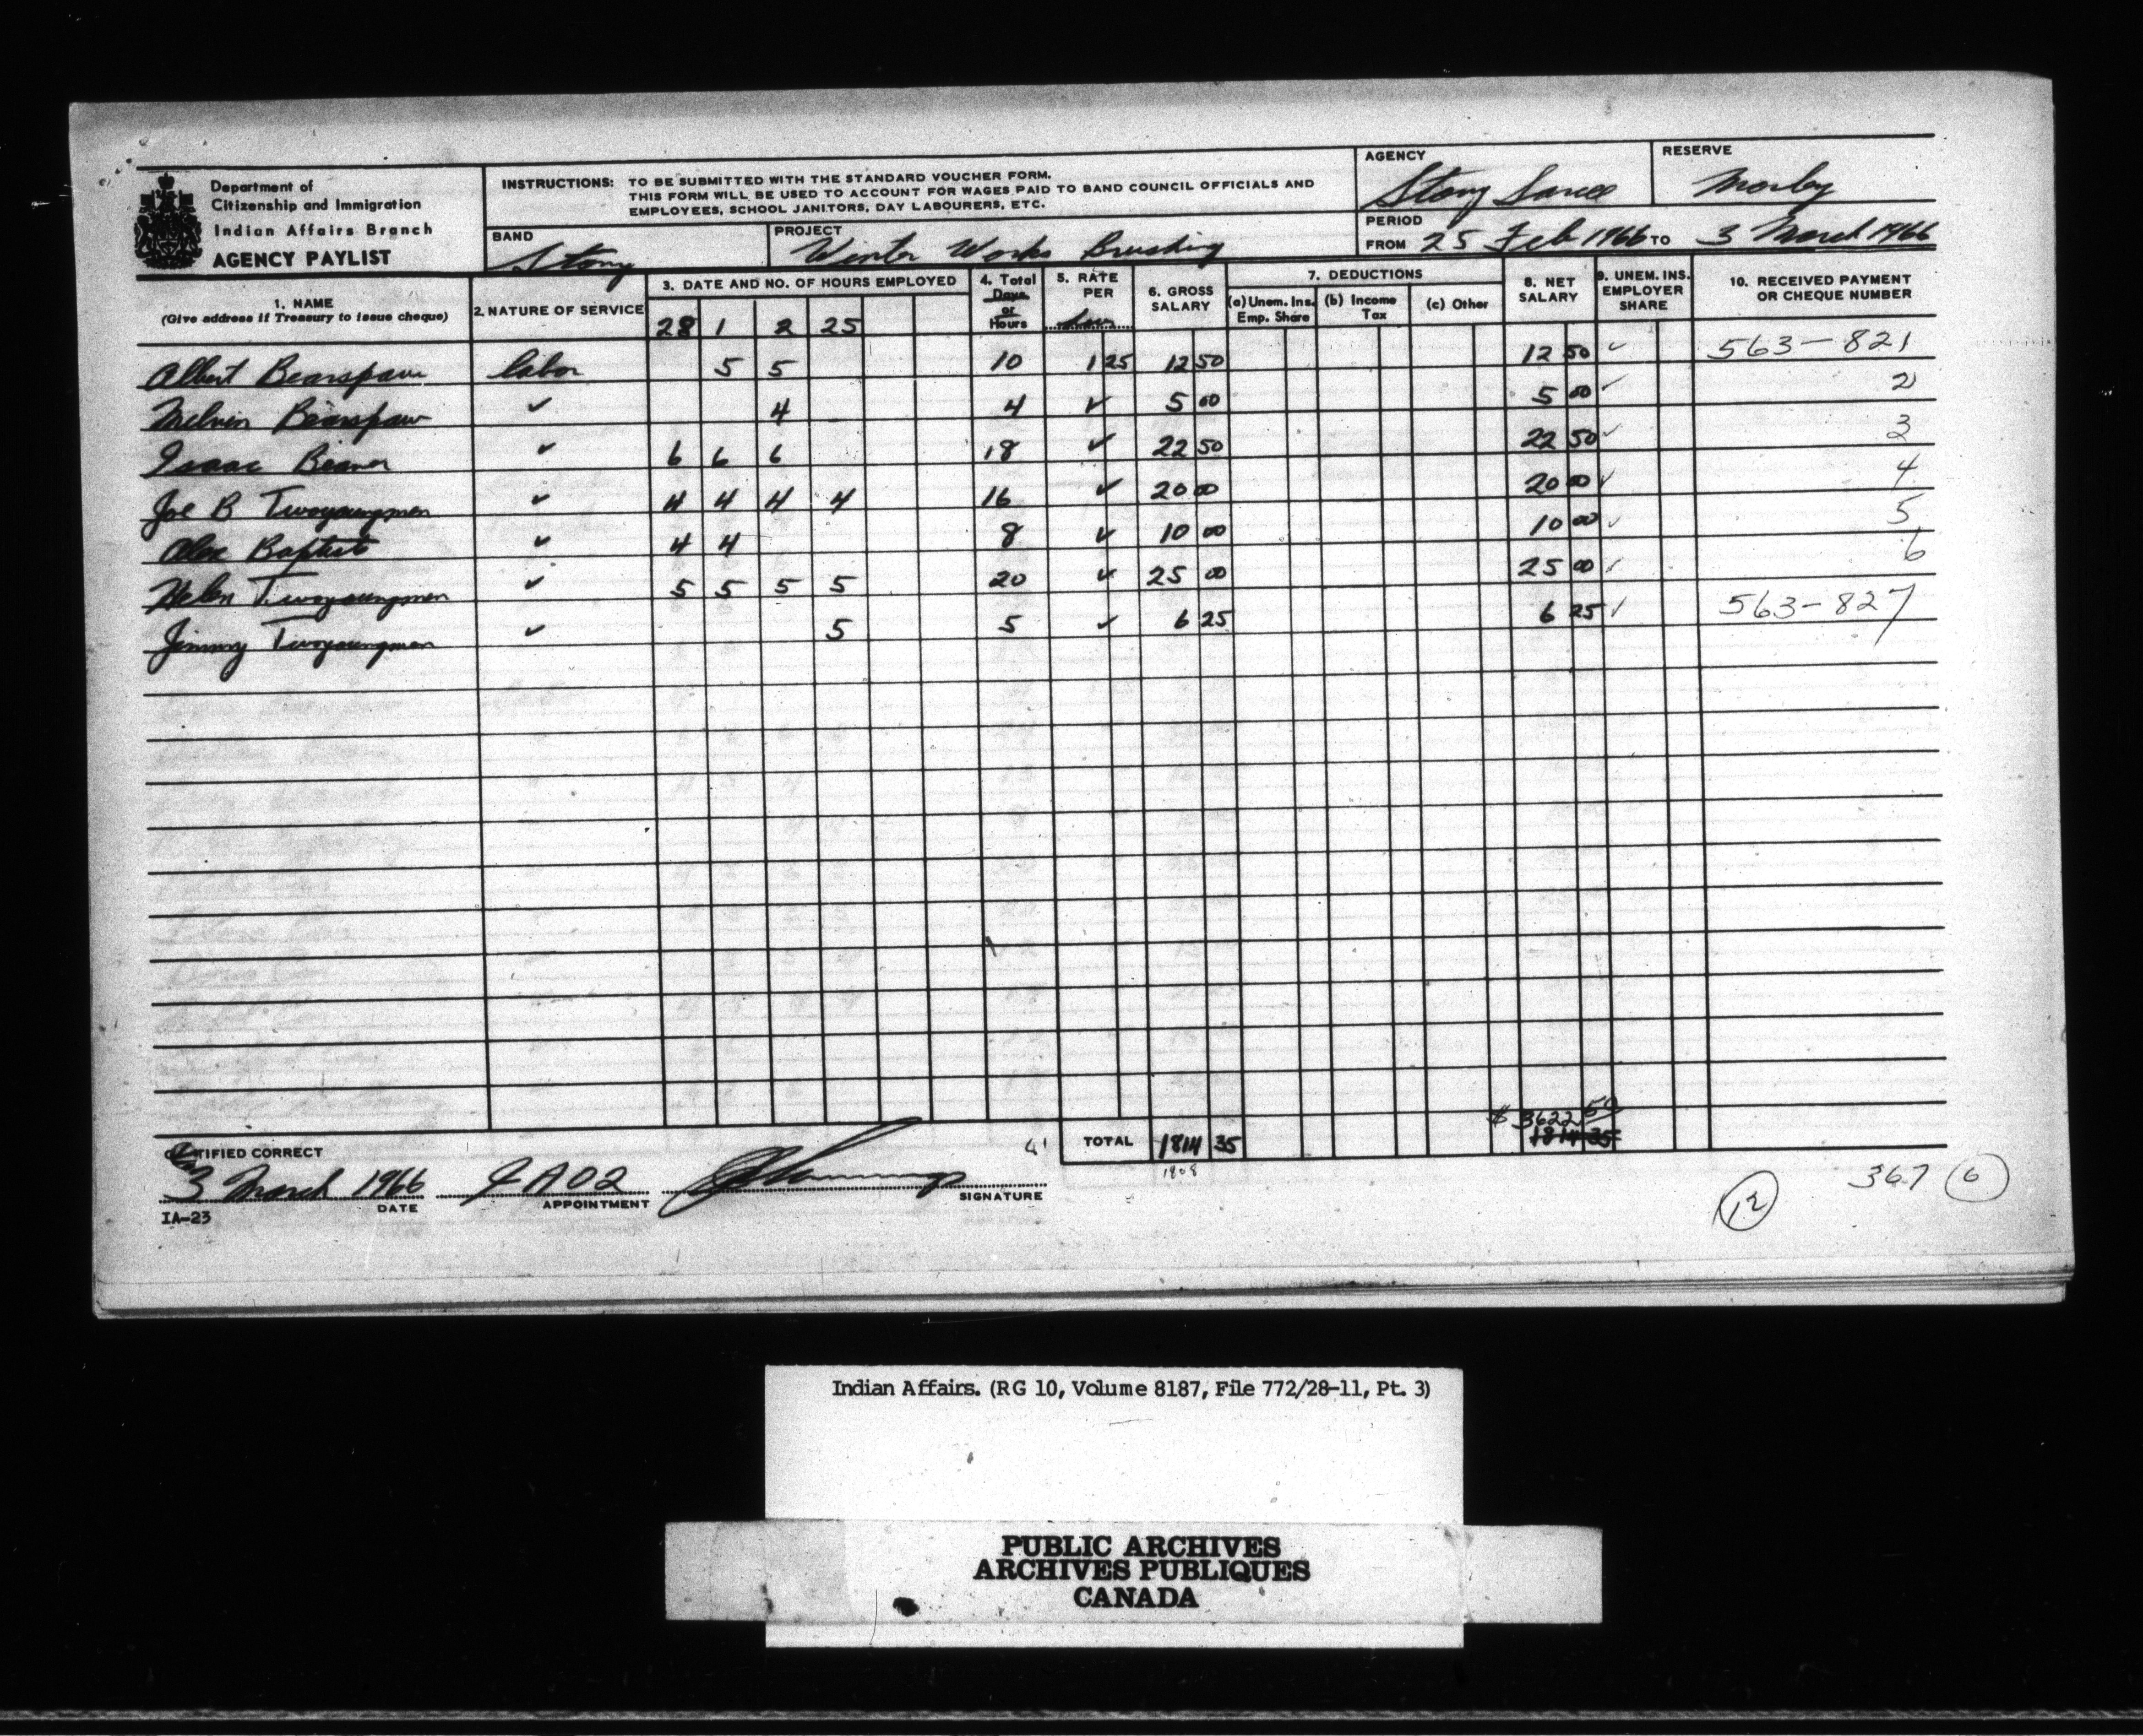 Department of
Citizenship and Immigration
Indian Affairs Branch
AGENCY PAYLIST
INSTRUCTIONS: TO BE SUBMITTED WITH THE STANDARD VOUCHER FORM.
THIS FORM WILL BE USED TO ACCOUNT FOR WAGES PAID TO BAND COUNCIL OFFICIALS AND
EMPLOYEES, SCHOOL JANITORS, DAY LABOURERS, ETC.
AGENCY
Stony Sarcee
RESERVE
Morley
BAND
Stony
PROJECT
Winter Works Brushing
PERIOD
FROM 25 Feb 1966 TO 3 March 1966
1. NAME
(Give address if Treasury to issue cheque)
2. NATURE OF SERVICE
3. DATE AND NO. OF HOURS EMPLOYED
28 1 2 25
4. Total
Days
or
Hours
5. RATE
PER
6. GROSS
SALARY
7. DEDUCTIONS
(a) Unem. Ins.
Emp. Share
(b) Income
Tax
(c) Other
8. NET
SALARY
9. UNEM. INS.
EMPLOYER
SHARE
10. RECEIVED PAYMENT
OR CHEQUE NUMBER
Albert Bearspaw labor 5 5 10 1 25 12 50 12 50 ✓ 563-821
Melvin Bearspaw ✓ 4 4 ✓ 5 00 5 00 ✓ 2
Isaac Beaver ✓ 6 6 6 18 ✓ 22 50 22 50 ✓ 3
Joe B Twoyoungmen ✓ 4 4 4 4 16 ✓ 20 00 20 00 ✓ 4
Alex Baptiste ✓ 4 4 8 ✓ 10 00 10 00 ✓ 5
Helen Twoyoungmen ✓ 5 5 5 5 20 ✓ 25 00 25 00 ✓ 6
Jimmy Twoyoungmen ✓ 5 5 ✓ 6 25 6 25 ✓ 563-827
$ 3622 50
TOTAL 1814 35 1814 35
1808
CERTIFIED CORRECT
3 March 1966
DATE
APPOINTMENT
SIGNATURE
IA-23
12
367 6
Indian Affairs. (RG 10, Volume 8187, File 772/28-11, Pt. 3)
PUBLIC ARCHIVES
ARCHIVES PUBLIQUES
CANADA